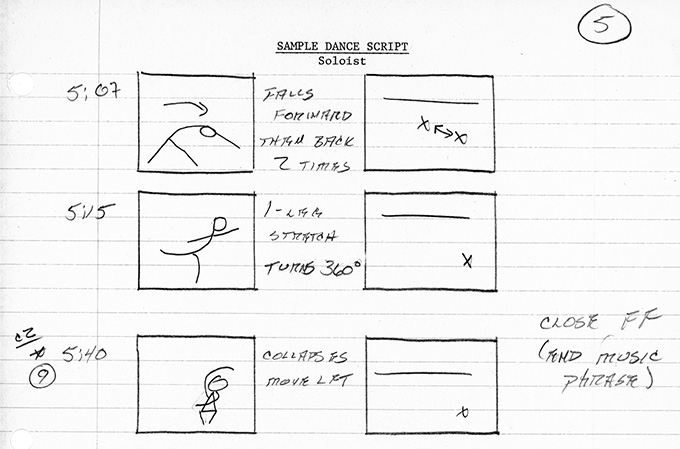 5
SAMPLE DANCE SCRIPT
Soloist
5:07
FALLS
FORWARD
THEN BACK
2 TIMES
X X
5:15
1-LEG
STRETCH
TURNS 360°
X
C2
5:40
9
COLLAPSES
MOVE LFT
X
CLOSE FF
(END MUSIC
PHRASE)